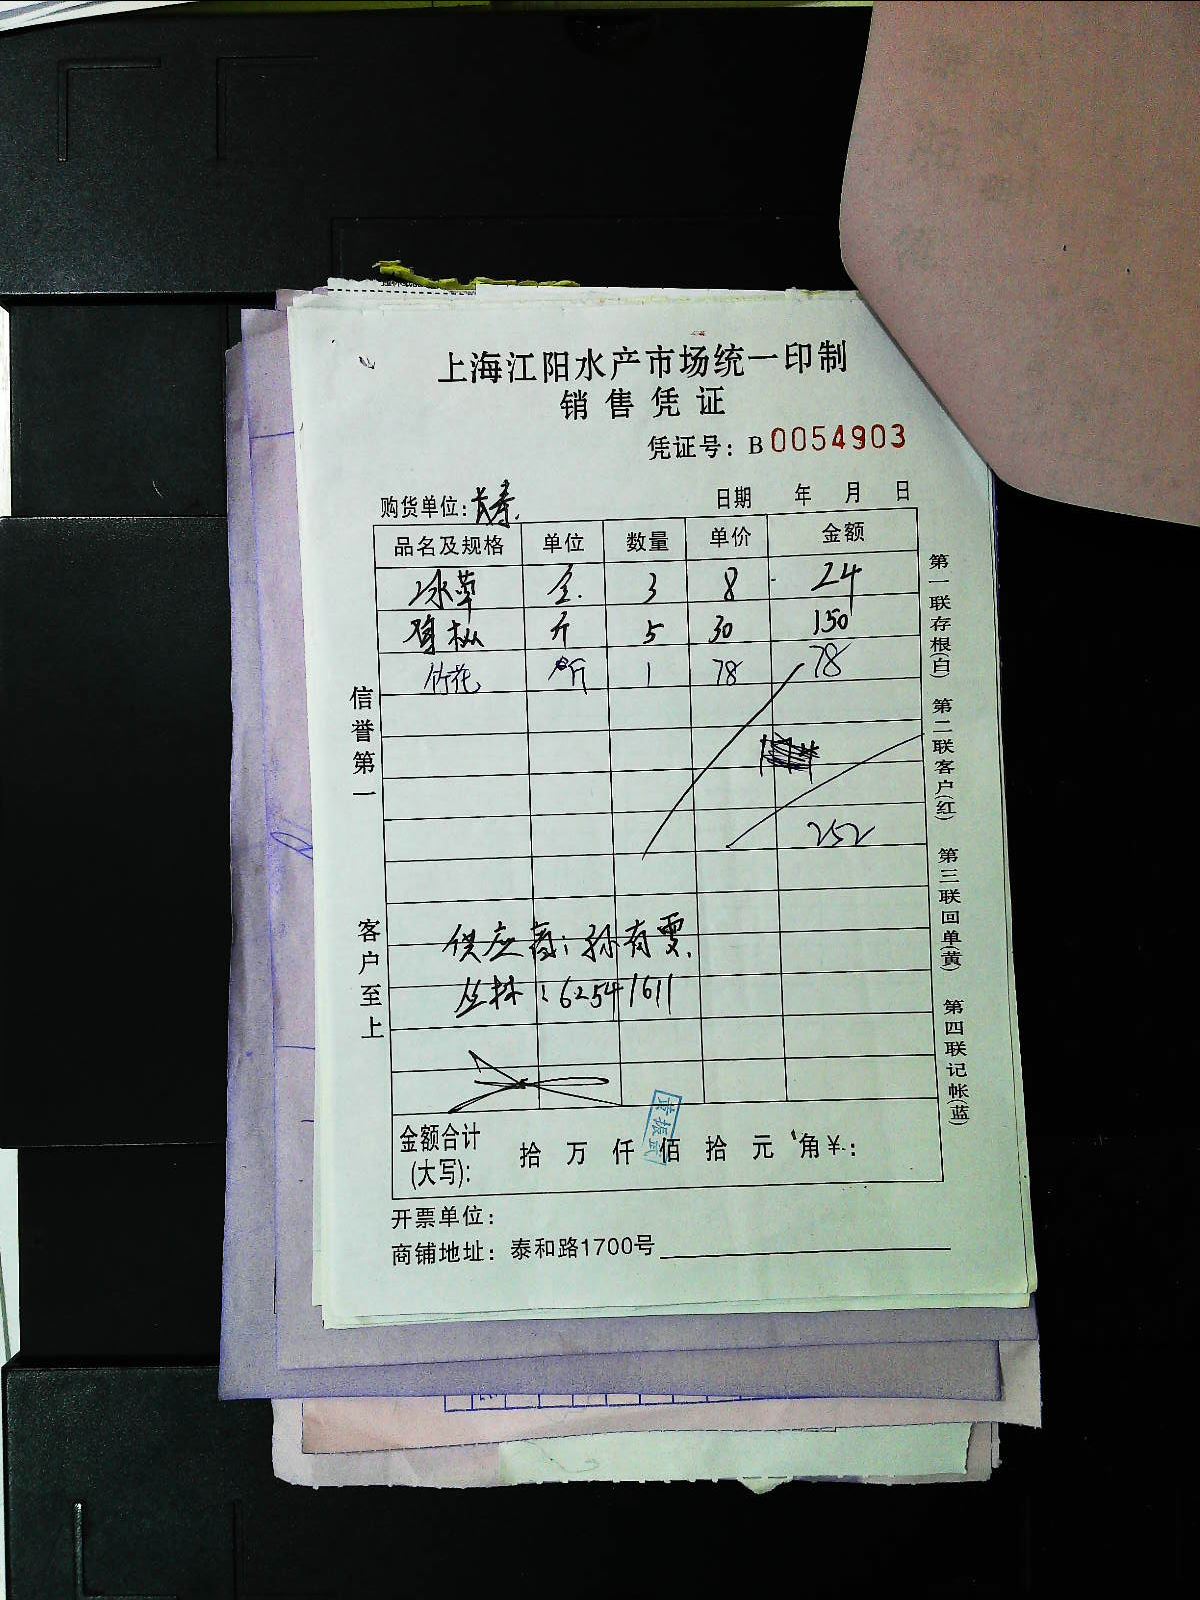 上海江阳水产市场统一印制
销售凭证
凭证号：B 0054903
购货单位：长寿. 日期 年 月 日
品名及规格 单位 数量 单价 金额
冰草 3 8 24
斤 5 30 150
竹花 斤 1 78 78
252
供应商：孙有雯.
丛林：62541611
金额合计(大写)： 拾 万 仟 佰 拾 元 角 ¥：
开票单位：
商铺地址：泰和路1700号
信誉第一
客户至上
第一联存根(白) 第二联客户(红) 第三联回单(黄) 第四联记帐(蓝)